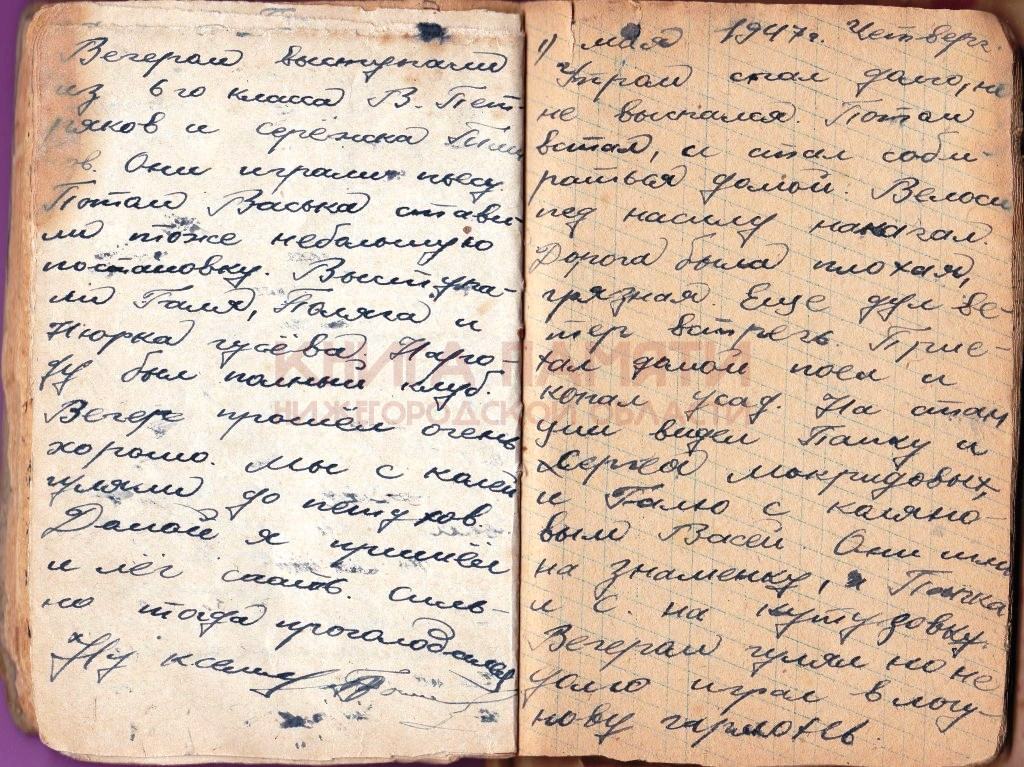 Вечером выступали
из 6го класса В. Пет-
ряков и Серёжка
в. Они играли пьесу.
Потом Васька стави-
ли тоже небольшую
постановку. Выступа-
ли Галя, и
Нюрка гусева. Наро-
ду был полный клуб.
Вечер прошёл очень
хорошо. Мы с колей
гуляли до петухов.
Домой я пришёл
и лёг спать. Силь-
но тогда проголодался
Ну
1) мая 1947г. Четверг.
Утром спал долго, но
не выспался. Потом
встал, и стал соби-
раться домой. Велоси
пед насилу накачал.
Дорога была плохая,
грязная. Еще дул ве-
тер встречь. Прие-
хал домой поел и
копал усад. На стан
ции видел Панку и
Сергея макридовых,
и Галю с каляно-
вым Васей. Они шли
на знаменку, а Панка
и С. на кутузовку.
Вечером гулял но не
долго играл в логу
нову гармонь.
КНИГА ПАМЯТИ
НИЖЕГОРОДСКОЙ ОБЛАСТИ